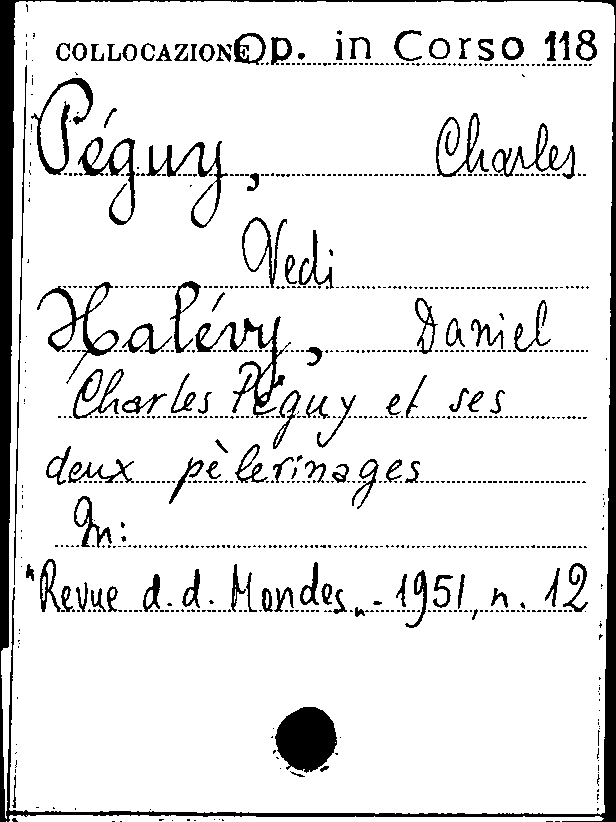 COLLOCAZIONE Op. in Corso 118
Péguy, Charles
Vedi
Halévy, Daniel
Charles Péguy et ses
deux pèlerinages
In:
"Revue d. d. Mondes„ - 1951, n. 12